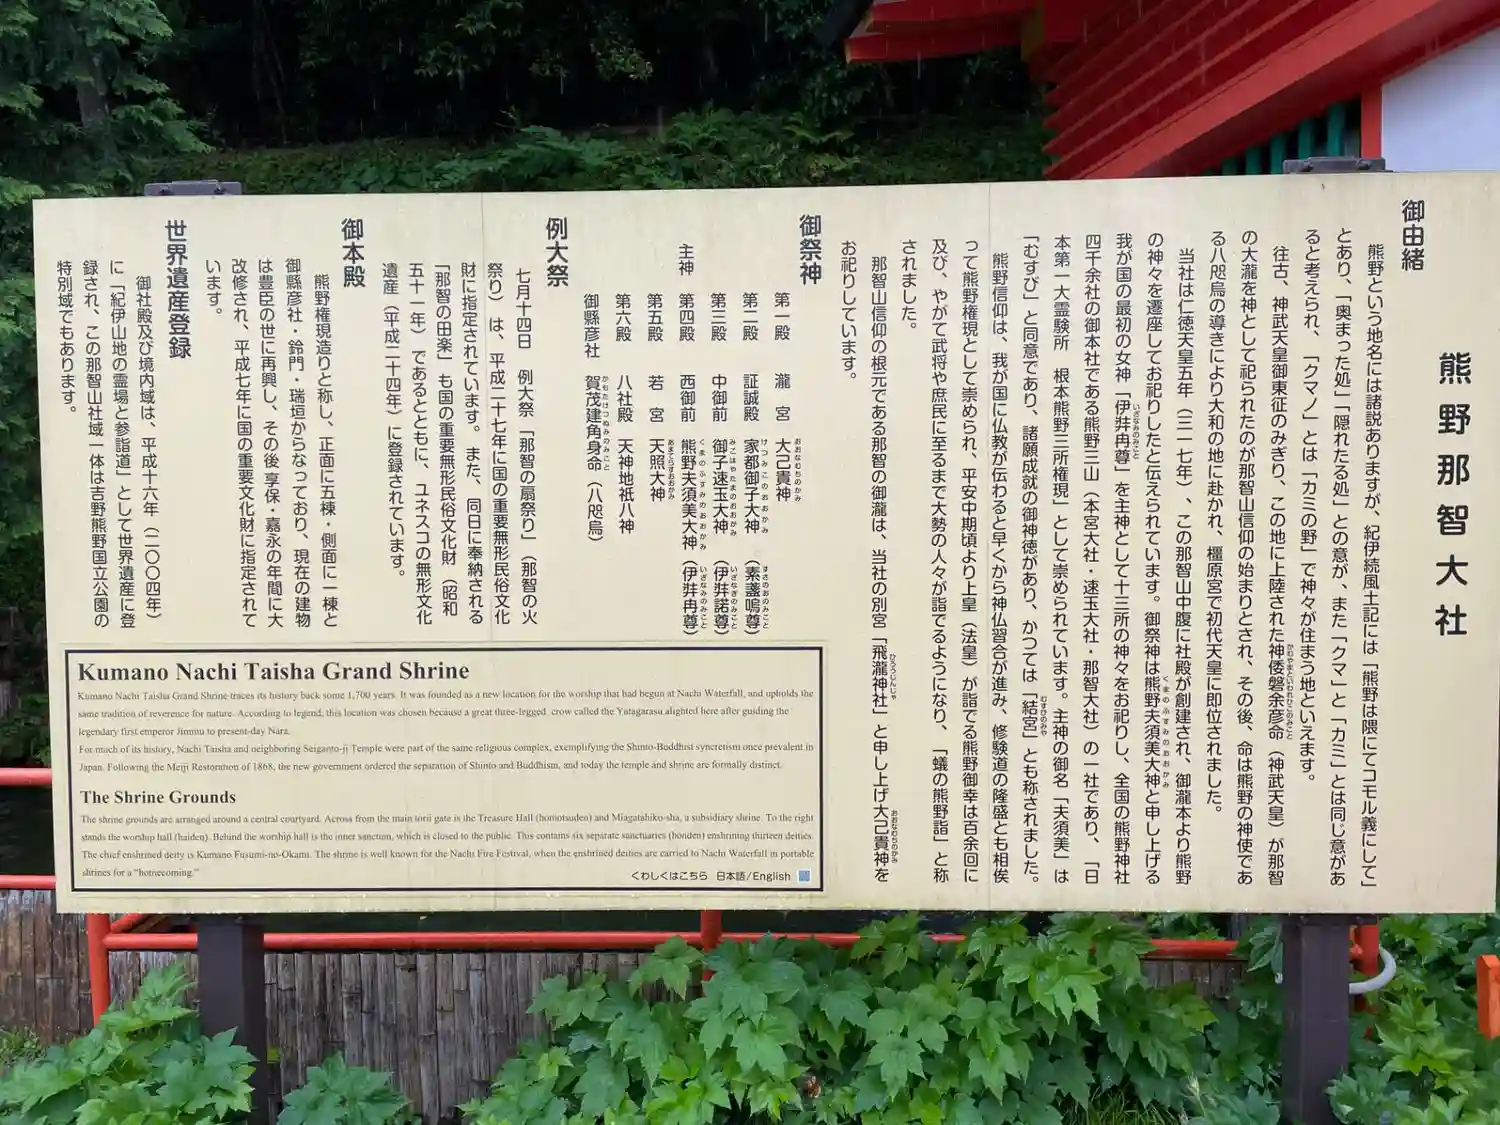 熊野那智大社
御由緒
熊野という地名には諸説ありますが、紀伊続風土記には「熊野は隈にてコモル義にして」
とあり、「奥まった処」「隠れたる処」との意が、また「クマ」と「カミ」とは同じ意があ
ると考えられ、「クマノ」とは「カミの野」で神々が住まう地といえます。
往古、神武天皇御東征のみぎり、この地に上陸された神倭磐余彦命（神武天皇）が那智
の大瀧を神として祀られたのが那智山信仰の始まりとされ、その後、命は熊野の神使であ
る八咫烏の導きにより大和の地に赴かれ、橿原宮で初代天皇に即位されました。
当社は仁徳天皇五年（三一七年）、この那智山中腹に社殿が創建され、御瀧本より熊野
の神々を遷座してお祀りしたと伝えられています。御祭神は熊野夫須美大神と申し上げる
我が国の最初の女神「伊弉冉尊」を主神として十三所の神々をお祀りし、全国の熊野神社
四千余社の御本社である熊野三山（本宮大社・速玉大社・那智大社）の一社であり、「日
本第一大霊験所　根本熊野三所権現」として崇められています。主神の御名「夫須美」は
「むすび」と同意であり、諸願成就の御神徳があり、かつては「結宮」とも称されました。
熊野信仰は、我が国に仏教が伝わると早くから神仏習合が進み、修験道の隆盛とも相俟
って熊野権現として崇められ、平安中期頃より上皇（法皇）が詣でる熊野御幸は百余回に
及び、やがて武将や庶民に至るまで大勢の人々が詣でるようになり、「蟻の熊野詣」と称
されました。
那智山信仰の根元である那智の御瀧は、当社の別宮「飛瀧神社」と申し上げ大己貴神を
お祀りしています。
御祭神
第一殿　瀧宮　大己貴神
第二殿　証誠殿　家都御子大神（素盞嗚尊）
第三殿　中御前　御子速玉大神（伊弉諾尊）
主神　第四殿　西御前　熊野夫須美大神（伊弉冉尊）
第五殿　若宮　天照大神
第六殿　八社殿　天神地祇八神
御縣彦社　賀茂建角身命（八咫烏）
例大祭
七月十四日　例大祭「那智の扇祭り」（那智の火
祭り）は、平成二十七年に国の重要無形民俗文化
財に指定されています。また、同日に奉納される
「那智の田楽」も国の重要無形民俗文化財（昭和
五十一年）であるとともに、ユネスコの無形文化
遺産（平成二十四年）に登録されています。
御本殿
熊野権現造りと称し、正面に五棟・側面に一棟と
御縣彦社・鈴門・瑞垣からなっており、現在の建物
は豊臣の世に再興し、その後享保・嘉永の年間に大
改修され、平成七年に国の重要文化財に指定されて
います。
世界遺産登録
御社殿及び境内域は、平成十六年（二〇〇四年）
に「紀伊山地の霊場と参詣道」として世界遺産に登
録され、この那智山社域一体は吉野熊野国立公園の
特別域でもあります。
Kumano Nachi Taisha Grand Shrine
Kumano Nachi Taisha Grand Shrine traces its history back some 1,700 years. It was founded as a new location for the worship that had begun at Nachi Waterfall, and upholds the
same tradition of reverence for nature. According to legend, this location was chosen because a great three-legged crow called the Yatagarasu alighted here after guiding the
legendary first emperor Jimmu to present-day Nara.
For much of its history, Nachi Taisha and neighboring Seiganto-ji Temple were part of the same religious complex, exemplifying the Shinto-Buddhist syncretism once prevalent in
Japan. Following the Meiji Restoration of 1868, the new government ordered the separation of Shinto and Buddhism, and today the temple and shrine are formally distinct.
The Shrine Grounds
The shrine grounds are arranged around a central courtyard. Across from the main torii gate is the Treasure Hall (homotsuden) and Miagatahiko-sha, a subsidiary shrine. To the right
stands the worship hall (haiden). Behind the worship hall is the inner sanctum, which is closed to the public. This contains six separate sanctuaries (honden) enshrining thirteen deities.
The chief enshrined deity is Kumano Fusumi-no-Okami. The shrine is well known for the Nachi Fire Festival, when the enshrined deities are carried to Nachi Waterfall in portable
shrines for a "homecoming."
くわしくはこちら 日本語/English